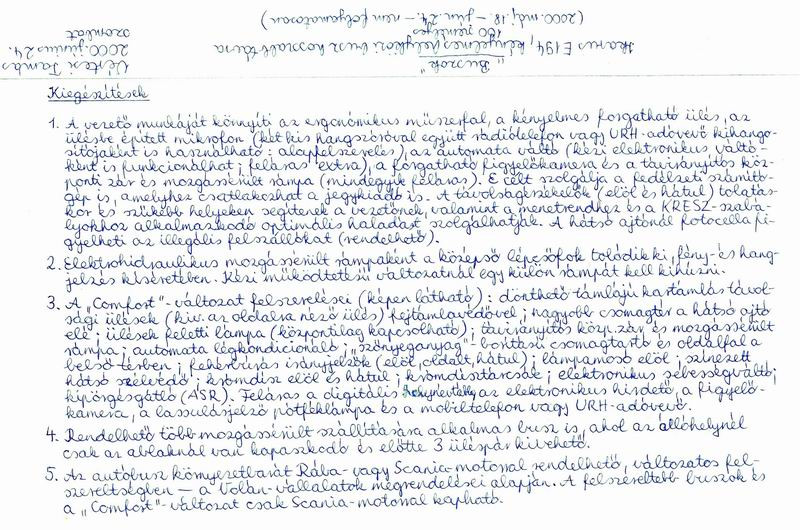 Vértesi Tamás
2000. június 24.
szombat
„Buszok”
Ikarus E194, kényelmes helyközi busz hosszabb távra
100 pontjes
(2000. máj. 18. – jún. 24. – nem folyamatosan)
Kiegészítések
1. A vezető munkáját könnyíti az ergonómikus műszerfal, a kényelmes forgatható ülés, az
ülésbe épített mikrofon (két kis hangszóróval együtt rádiótelefon vagy URH-adóvevő kihango-
sítójaként is használható: alapfelszerelés), az automata váltó (kézi elektronikus váltó-
ként is funkcionálhat; feláras extra), a forgatható figyelőkamera és a távirányítós köz-
ponti zár és mozgássérült rámpa (mindegyik feláras). E célt szolgálja a fedélzeti számító-
gép is, amelyhez csatlakozhat a jegykiadó is. A távolságérzékelők (elöl és hátul) tolatás-
kor és szűkebb helyeken segítenek a vezetőnek, valamint a menetrendhez és a KRESZ-szabá-
lyokhoz alkalmazkodó optimális haladást szolgálhatják. A hátsó ajtónál fotocella fi-
gyelheti az illegális felszállókat (rendelhető).
2. Elektrohidraulikus mozgássérült rámpaként a középső lépcsőfok tolódik ki, fény- és hang-
jelzés kíséretében. Kézi működtetésű változatnál egy külön rámpát kell kihúzni.
3. A „Comfort”-változat felszerelései (képen látható): dönthető támlájú kartámlás távol-
sági ülések (kiv. az oldalra néző ülés) fejtámlavédővel; nagyobb csomagtér a hátsó ajtó
elé; ülések feletti lámpa (központilag kapcsolható); távirányítós közp. zár és mozgássérült
rámpa; automata légkondicionáló; „szőnyeganyag”-borítású csomagtartó és oldalfal a
belső térben; fehérbúrás irányjelzők (elöl, oldalt, hátul); lámpamosó elöl; színezett
hátsó szélvédő; krómdísz elöl és hátul; krómdísztárcsák; elektronikus sebességváltó;
kipörgésgátló (ASR). Feláras a digitális az elektronikus hirdető, a figyelő-
kamera, a lassulásjelző pótféklámpa és a mobiltelefon vagy URH-adóvevő.
4. Rendelhető több mozgássérült szállítására alkalmas busz is, ahol az állóhelynél
csak az ablaknál van kapaszkodó és előtte 3 üléspár kivehető.
5. Az autóbusz környezetbarát Rába- vagy Scania-motorral rendelhető, változatos fel-
szereltségben – a Volán-vállalatok megrendelései alapján. A felszereltebb buszok és
a „Comfort”-változat csak Scania-motorral kapható.